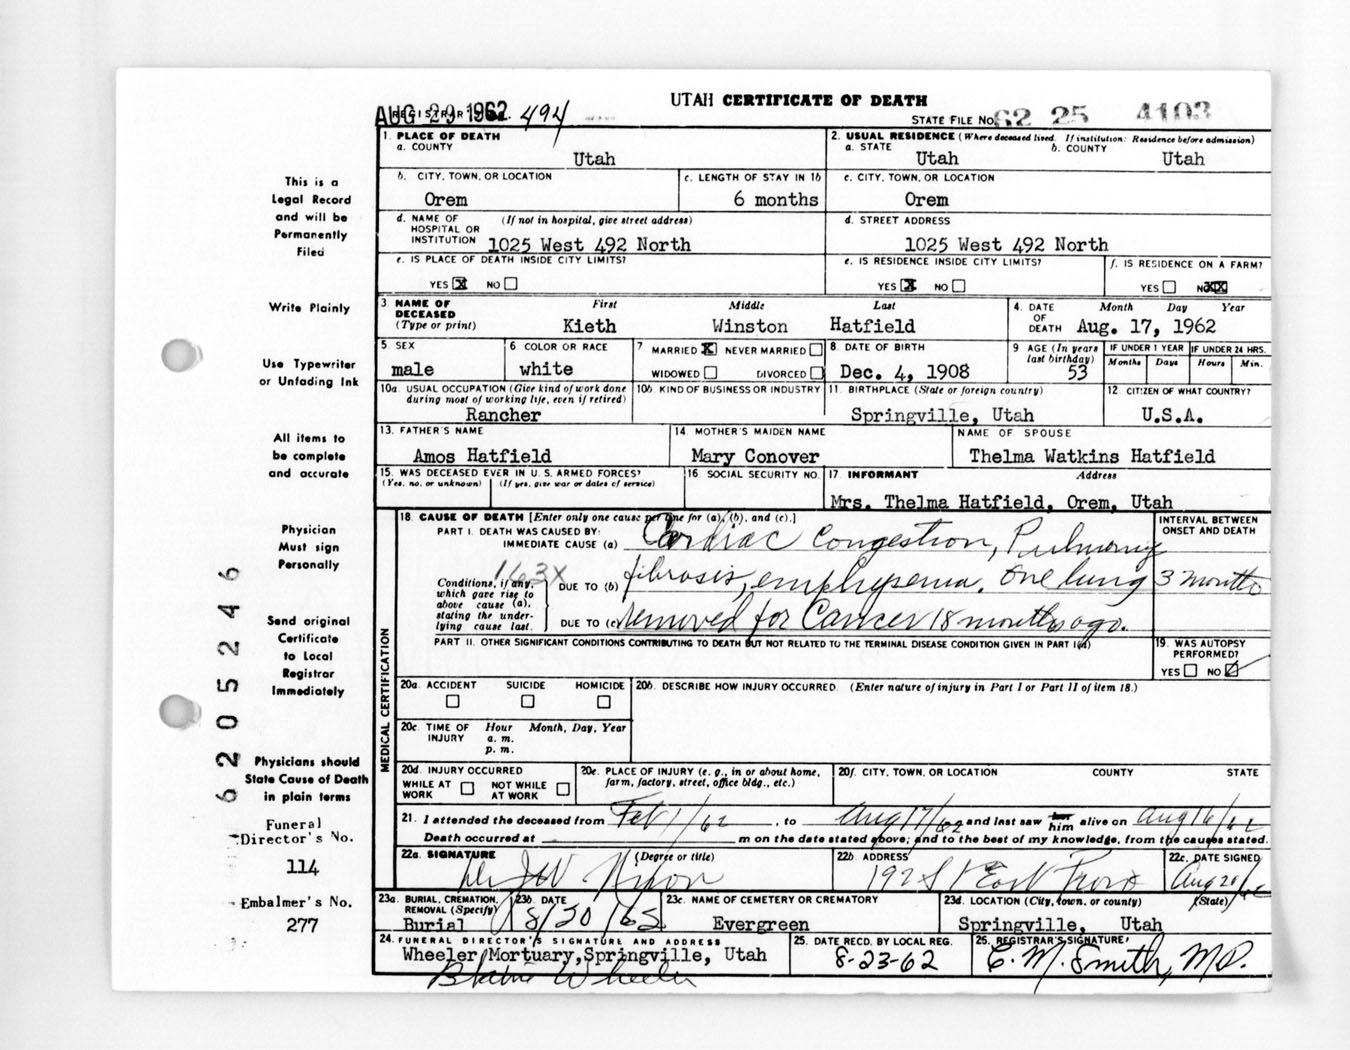 UTAH CERTIFICATE OF DEATH
AUG 29 1962 REGISTRAR'S NO. 494
STATE FILE No. 62 25 4103
1. PLACE OF DEATH
a. COUNTY
Utah
2. USUAL RESIDENCE (Where deceased lived. If institution: Residence before admission)
a. STATE b. COUNTY
Utah Utah
b. CITY, TOWN, OR LOCATION
Orem
c. LENGTH OF STAY IN 1b
6 months
c. CITY, TOWN, OR LOCATION
Orem
d. NAME OF (If not in hospital, give street address)
HOSPITAL OR
INSTITUTION 1025 West 492 North
d. STREET ADDRESS
1025 West 492 North
e. IS PLACE OF DEATH INSIDE CITY LIMITS?
YES X NO
e. IS RESIDENCE INSIDE CITY LIMITS?
YES X NO
f. IS RESIDENCE ON A FARM?
YES NO XX
3. NAME OF First Middle Last
DECEASED
(Type or print) Kieth Winston Hatfield
4. DATE Month Day Year
OF
DEATH Aug. 17, 1962
5. SEX
male
6 COLOR OR RACE
white
7 MARRIED X NEVER MARRIED
WIDOWED DIVORCED
8. DATE OF BIRTH
Dec. 4, 1908
9 AGE (In years
last birthday)
53
IF UNDER 1 YEAR IF UNDER 24 HRS.
Months Days Hours Min.
10a. USUAL OCCUPATION (Give kind of work done
during most of working life, even if retired)
Rancher
10b. KIND OF BUSINESS OR INDUSTRY
11. BIRTHPLACE (State or foreign country)
Springville, Utah
12. CITIZEN OF WHAT COUNTRY?
U.S.A.
13. FATHER'S NAME
Amos Hatfield
14 MOTHER'S MAIDEN NAME
Mary Conover
NAME OF SPOUSE
Thelma Watkins Hatfield
15. WAS DECEASED EVER IN U. S. ARMED FORCES?
(Yes, no, or unknown) (If yes, give war or dates of service)
16 SOCIAL SECURITY NO.
17. INFORMANT Address
Mrs. Thelma Hatfield, Orem, Utah
18. CAUSE OF DEATH [Enter only one cause per line for (a), (b), and (c).]
PART I. DEATH WAS CAUSED BY:
IMMEDIATE CAUSE (a) Cardiac Congestion, Pulmonary
INTERVAL BETWEEN
ONSET AND DEATH
163X
Conditions, if any,
which gave rise to
above cause (a),
stating the under-
lying cause last.
DUE TO (b) fibrosis, emphysema. One lung 3 months
DUE TO (c) removed for Cancer 18 months ago.
PART II. OTHER SIGNIFICANT CONDITIONS CONTRIBUTING TO DEATH BUT NOT RELATED TO THE TERMINAL DISEASE CONDITION GIVEN IN PART I(a)
19. WAS AUTOPSY
PERFORMED?
YES NO
MEDICAL CERTIFICATION
20a. ACCIDENT SUICIDE HOMICIDE
20b. DESCRIBE HOW INJURY OCCURRED. (Enter nature of injury in Part I or Part II of item 18.)
20c. TIME OF Hour Month, Day, Year
INJURY a. m.
p. m.
20d. INJURY OCCURRED
WHILE AT NOT WHILE
WORK AT WORK
20e. PLACE OF INJURY (e. g., in or about home,
farm, factory, street, office bldg., etc.)
20f. CITY, TOWN, OR LOCATION COUNTY STATE
21. I attended the deceased from Feb 1/62, to Aug 17/62 and last saw her him alive on Aug 16/62
Death occurred at m on the date stated above; and to the best of my knowledge, from the causes stated.
22a. SIGNATURE (Degree or title)
Nixon
22b. ADDRESS
192 S 1 East Provo
22c. DATE SIGNED
Aug 20/62
23a. BURIAL, CREMATION,
REMOVAL (Specify)
Burial
23b. DATE
8/20/62
23c. NAME OF CEMETERY OR CREMATORY
Evergreen
23d. LOCATION (City, town, or county) (State)
Springville, Utah
24. FUNERAL DIRECTOR'S SIGNATURE AND ADDRESS
Wheeler Mortuary, Springville, Utah
Blaine Wheeler
25. DATE RECD. BY LOCAL REG.
8-23-62
26. REGISTRAR'S SIGNATURE
C. M. Smith, MD.
This is a
Legal Record
and will be
Permanently
Filed
Write Plainly
Use Typewriter
or Unfading Ink
All items to
be complete
and accurate
Physician
Must sign
Personally
Send original
Certificate
to Local
Registrar
Immediately
Physicians should
State Cause of Death
in plain terms
Funeral
Director's No.
114
Embalmer's No.
277
6205246